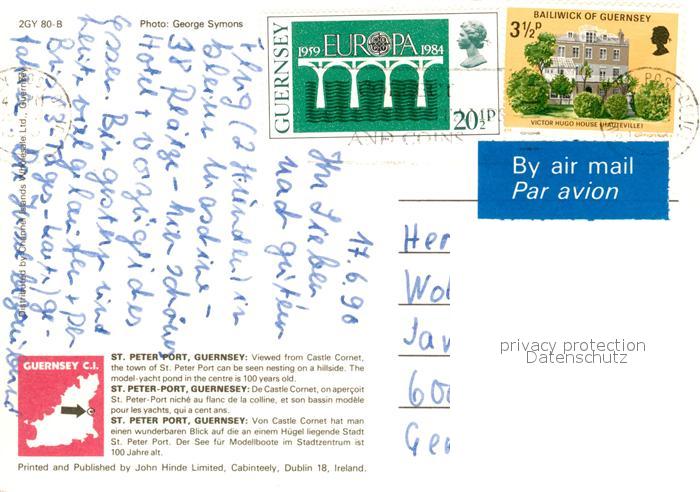 2GY 80-B
Photo: George Symons
GUERNSEY
1959 EUROPA 1984
20½P
BAILIWICK OF GUERNSEY
3½P
VICTOR HUGO HOUSE (HAUTEVILLE)
AND COINS
By air mail
Par avion
17.6.90
Ihr Lieben
nach gutem
Flug (2 Stunden) in
38 Plätze - hier schönes
Hotel + vorzügliches
Essen. Bin gestern und
heute viel gelaufen +
Her
Wol
Jav
600
Ger
privacy protection
Datenschutz
Distributed by Channel Islands Wholesale Ltd., Guernsey
GUERNSEY C.I.
ST. PETER PORT, GUERNSEY: Viewed from Castle Cornet,
the town of St. Peter Port can be seen nesting on a hillside. The
model-yacht pond in the centre is 100 years old.
ST. PETER-PORT, GUERNESEY: De Castle Cornet, on aperçoit
St. Peter-Port niché au flanc de la colline, et son bassin modèle
pour les yachts, qui a cent ans.
ST. PETER PORT, GUERNSEY: Von Castle Cornet hat man
einen wunderbaren Blick auf die an einem Hügel liegende Stadt
St. Peter Port. Der See für Modellboote im Stadtzentrum ist
100 Jahre alt.
Printed and Published by John Hinde Limited, Cabinteely, Dublin 18, Ireland.